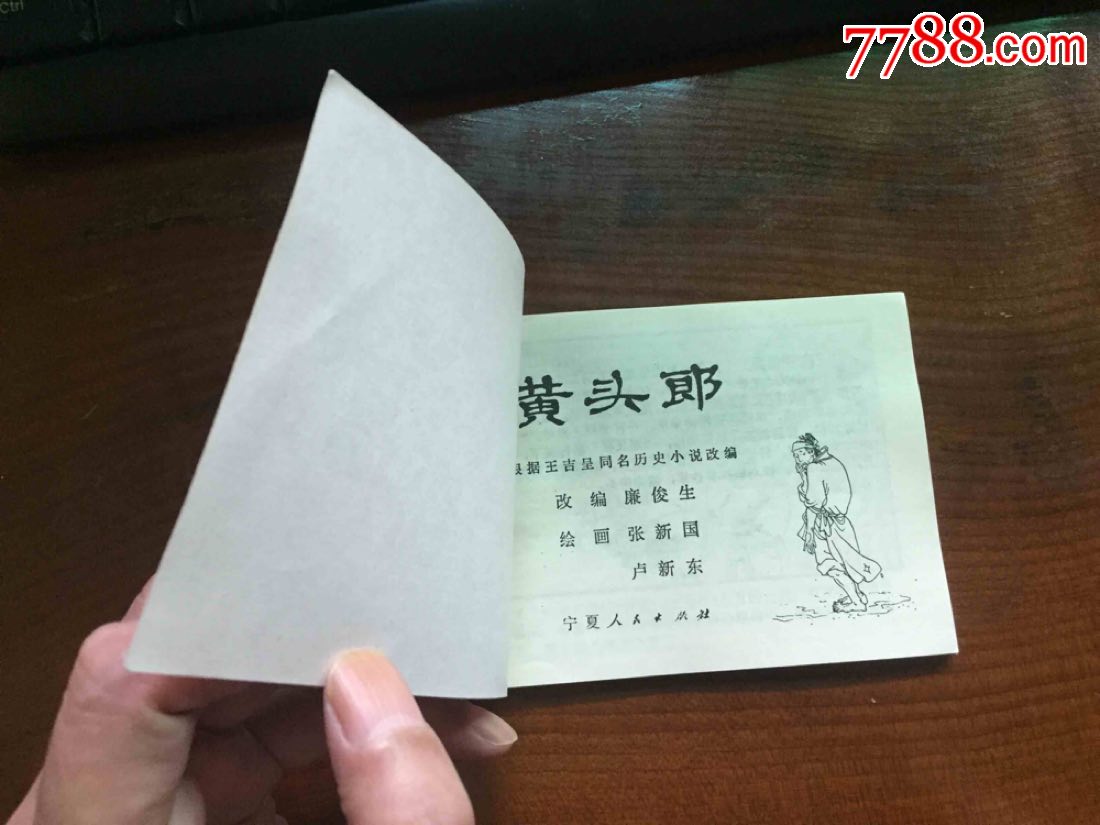 Ctrl
7788.com
黄头郎
根据王吉呈同名历史小说改编
改 编 廉俊生
绘 画 张新国
卢新东
宁夏人民出版社